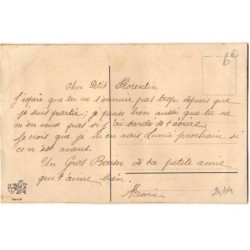 Cher Petit Florentin
J'espère que tu ne t'ennuie pas trop depuis que
je suis partie; je pense bien aussi que tu ne
m'en veux pas si j'ai tardé de t'écrire
Je crois que je m'en vais Lundi prochaine si
ce n'est avant.
Un Gros Baiser de ta petite amie
qui t'aime bien.
Maria